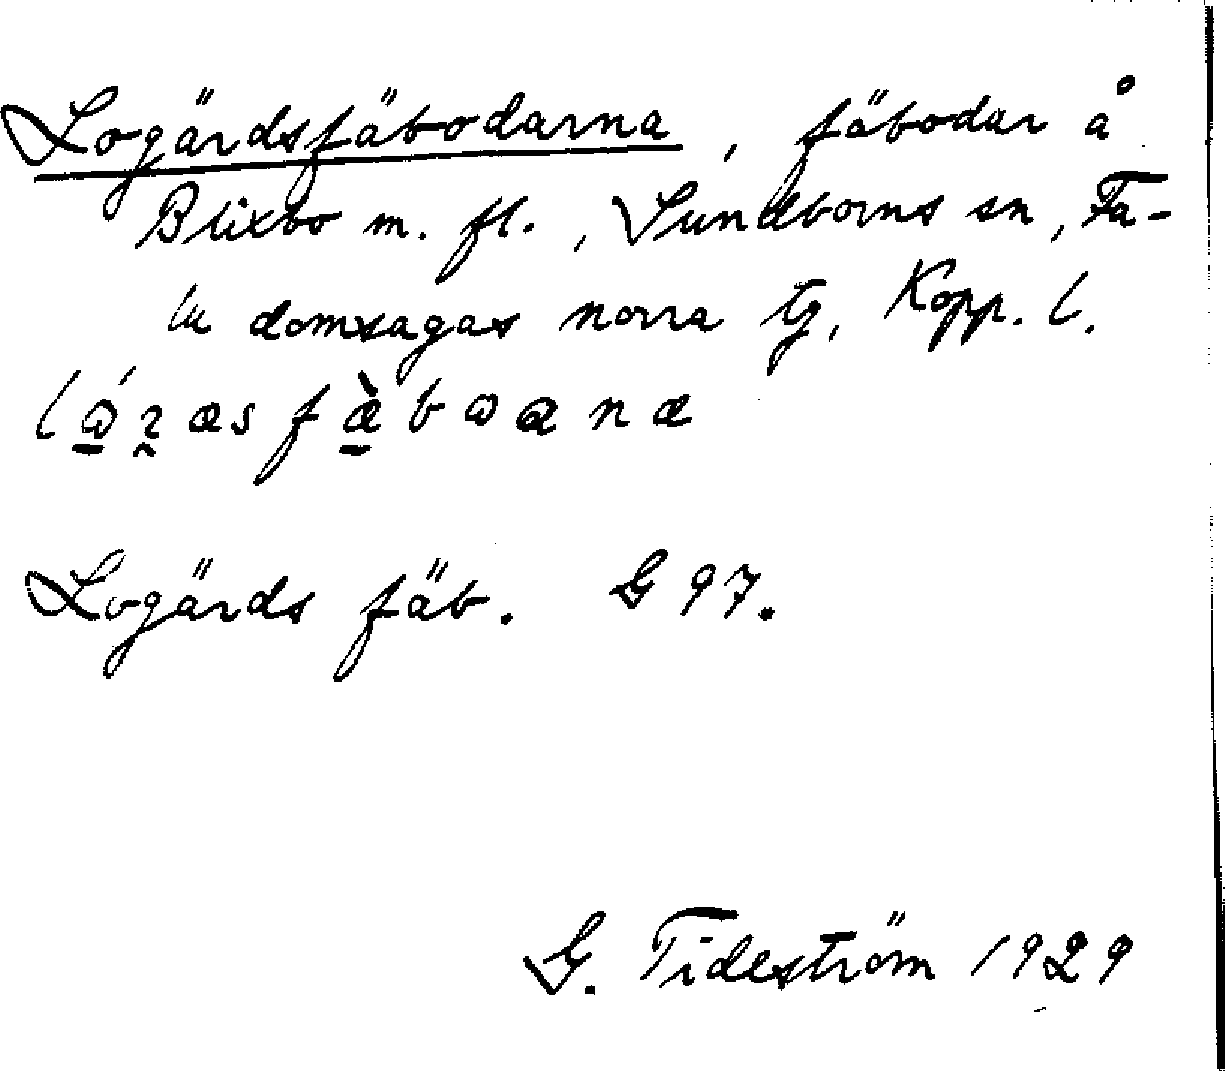 Logärdsfäbodarna, fäbodar å
Blixbo m. fl., Sundborns sn, Fa-
lu domsagas norra tg, Kopp. l.
Logärds fäb. G 97.
G. Tideström 1929